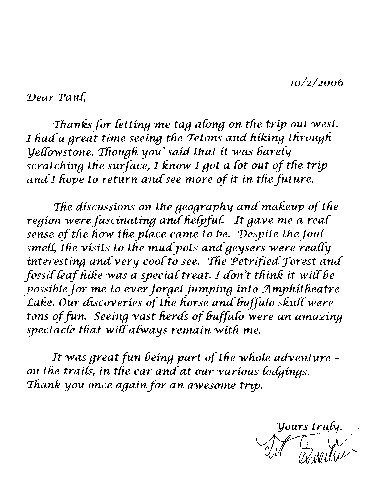 10/2/2006
Dear Paul,
Thanks for letting me tag along on the trip out west.
I had a great time seeing the Tetons and hiking through
Yellowstone. Though you said that it was barely
scratching the surface, I know I got a lot out of the trip
and I hope to return and see more of it in the future.
The discussions on the geography and makeup of the
region were fascinating and helpful. It gave me a real
sense of the how the place came to be. Despite the foul
smell, the visits to the mud pots and geysers were really
interesting and very cool to see. The Petrified Forest and
fossil leaf hike was a special treat. I don't think it will be
possible for me to ever forget jumping into Amphitheatre
Lake. Our discoveries of the horse and buffalo skull were
tons of fun. Seeing vast herds of buffalo were an amazing
spectacle that will always remain with me.
It was great fun being part of the whole adventure –
on the trails, in the car and at our various lodgings.
Thank you once again for an awesome trip.
Yours truly,